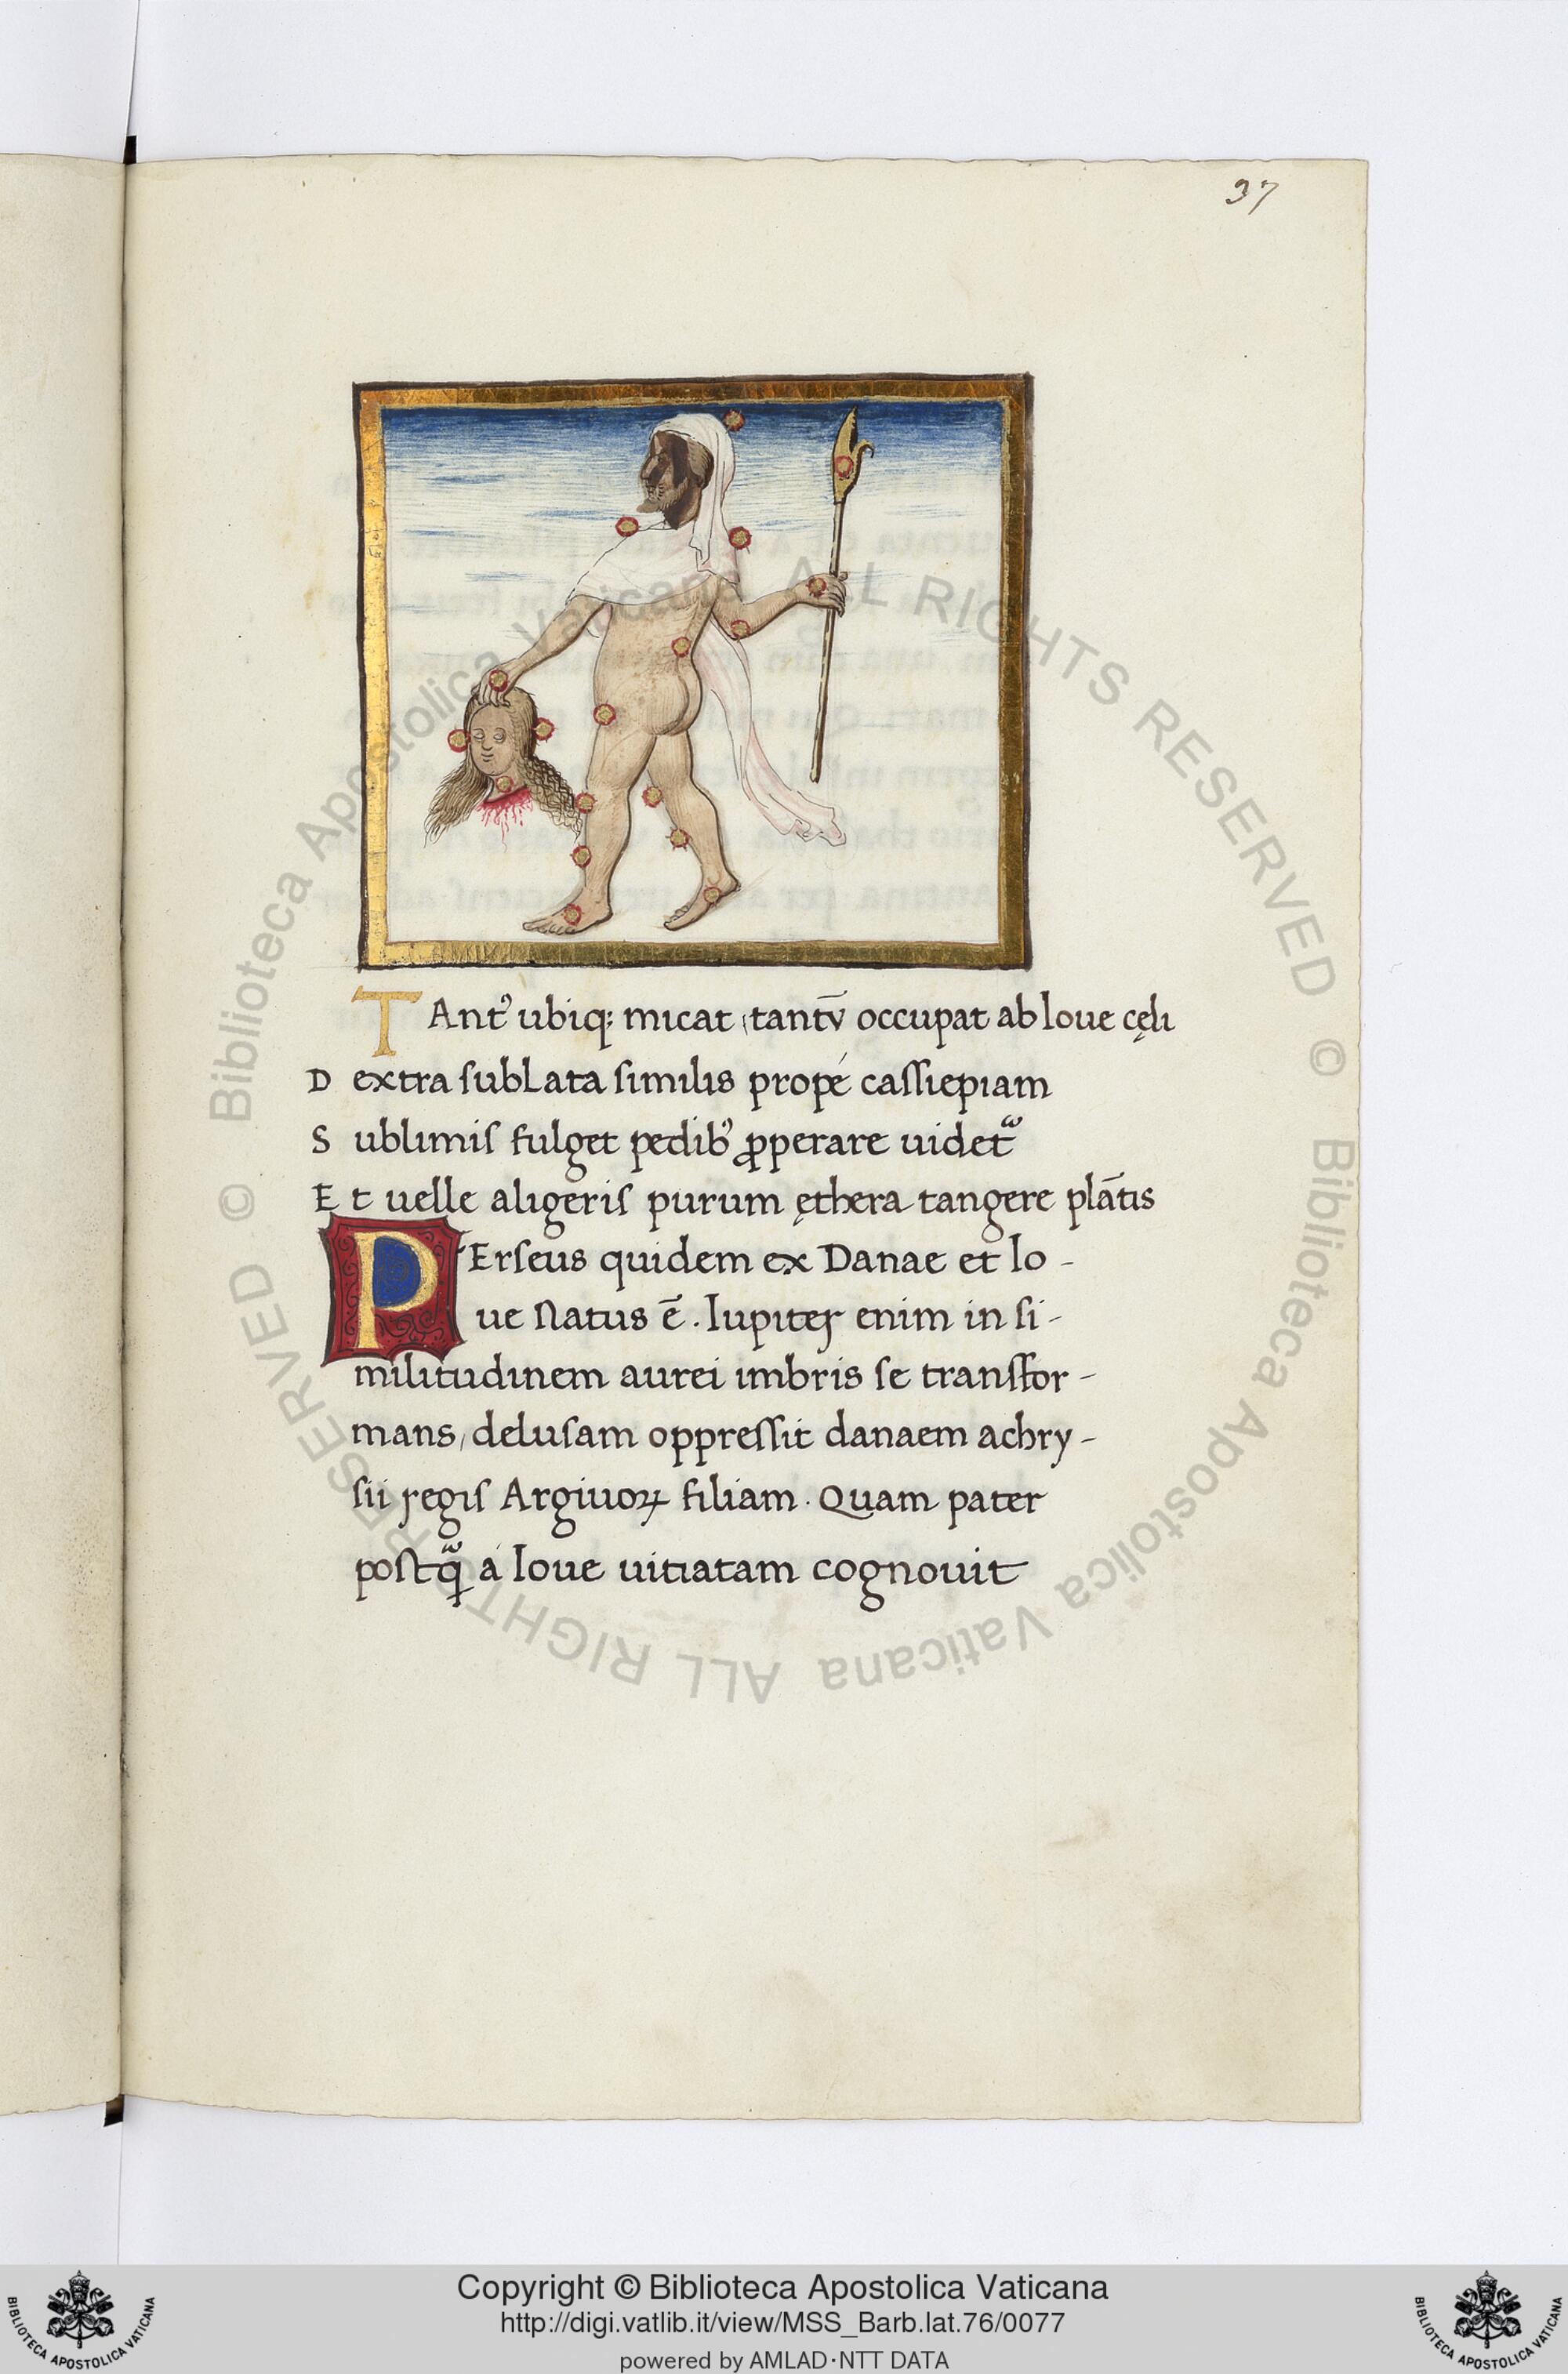 37
TAntꝰ ubiq; micat tantū occupat ab Ioue cęli
D extra sublata similis propé cassiepiam
S ublimis fulget pedibꝰ ꝓperare uidet᷑
E t uelle aligeris purum ęthera tangere plātis
PErseus quidem ex Danae et Io-
ue Natus ē. Iupiter enim in si-
militudinem aurei imbris se transfor-
mans, delusam oppressit danaem achry-
sii regis Argiuoꝝ filiam. Quam pater
postq̃ á Ioue uitiatam cognouit
© Biblioteca Apostolica Vaticana ALL RIGHTS RESERVED
© Biblioteca Apostolica Vaticana ALL RIGHTS RESERVED
Copyright © Biblioteca Apostolica Vaticana
http://digi.vatlib.it/view/MSS_Barb.lat.76/0077
powered by AMLAD·NTT DATA
BIBLIOTECA APOSTOLICA VATICANA
BIBLIOTECA APOSTOLICA VATICANA